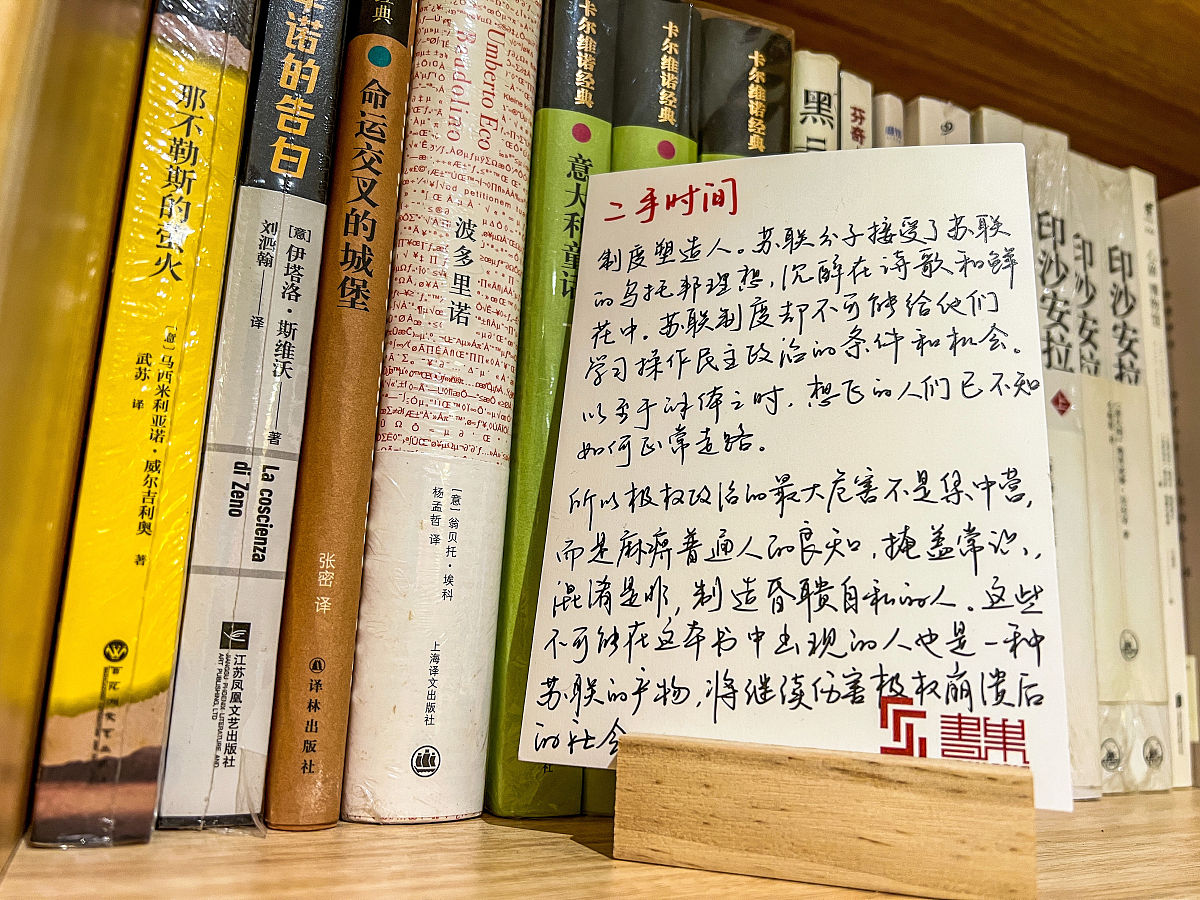 那不勒斯的萤火
[意]马西米利亚诺·威尔吉利奥 著
武苏 译
诺的告白
[意]伊塔洛·斯维沃 著
刘汹翰 译
La coscienza
di Zeno
江苏凤凰文艺出版社
JIANGSU PHOENIX LITERATURE AND
ART PUBLISHING, LTD
经典
命运交叉的城堡
张密 译
译林出版社
Umberto Eco
Baudolino
波多里诺
[意]翁贝托·埃科
杨孟哲 译
上海译文出版社
卡尔维诺经典
意大利童话
卡尔维诺经典
卡尔维诺经典
黑
芬奇
二手时间
制度塑造人。苏联分子接受了苏联
的乌托邦理想,沉醉在诗歌和鲜
花中。苏联制度却不可能给他们
学习操作民主政治的条件和机会。
以至于解体之时,想飞的人们已不知
如何正常走路。
所以极权政治的最大危害不是集中营,
而是麻痹普通人的良知,掩盖常识、
混淆是非,制造昏聩自私的人。这些
不可能在这本书中出现的人也是一种
苏联的产物,将继续伤害极权崩溃后
的社会
書集
印沙安拉
上
印沙安拉
印沙安拉